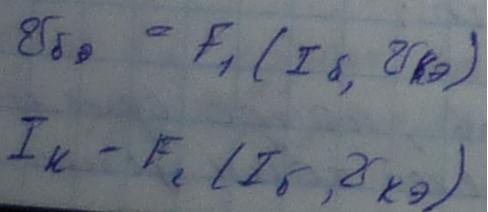 Uбэ = F₁ (Iб, Uкэ)
Iк - F₂ (Iб, Uкэ)